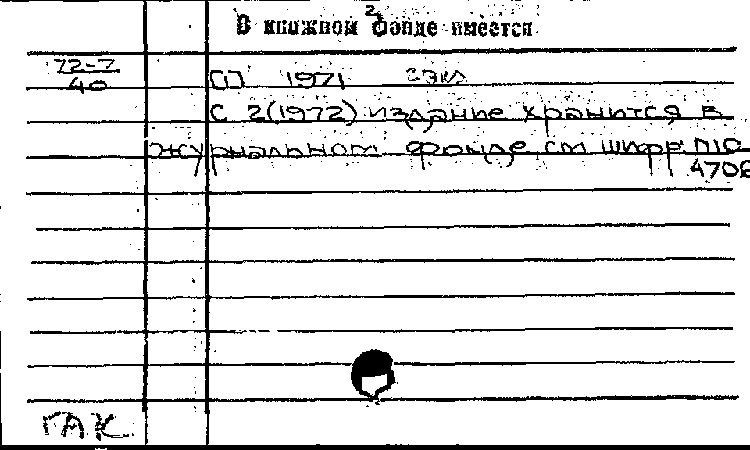 2
В книжном фонде имеется
72-7
40
[1] 1971 2экл
С 2(1972) издание хранится в
журнальном фонде, см шифр П10
4706
ГАК